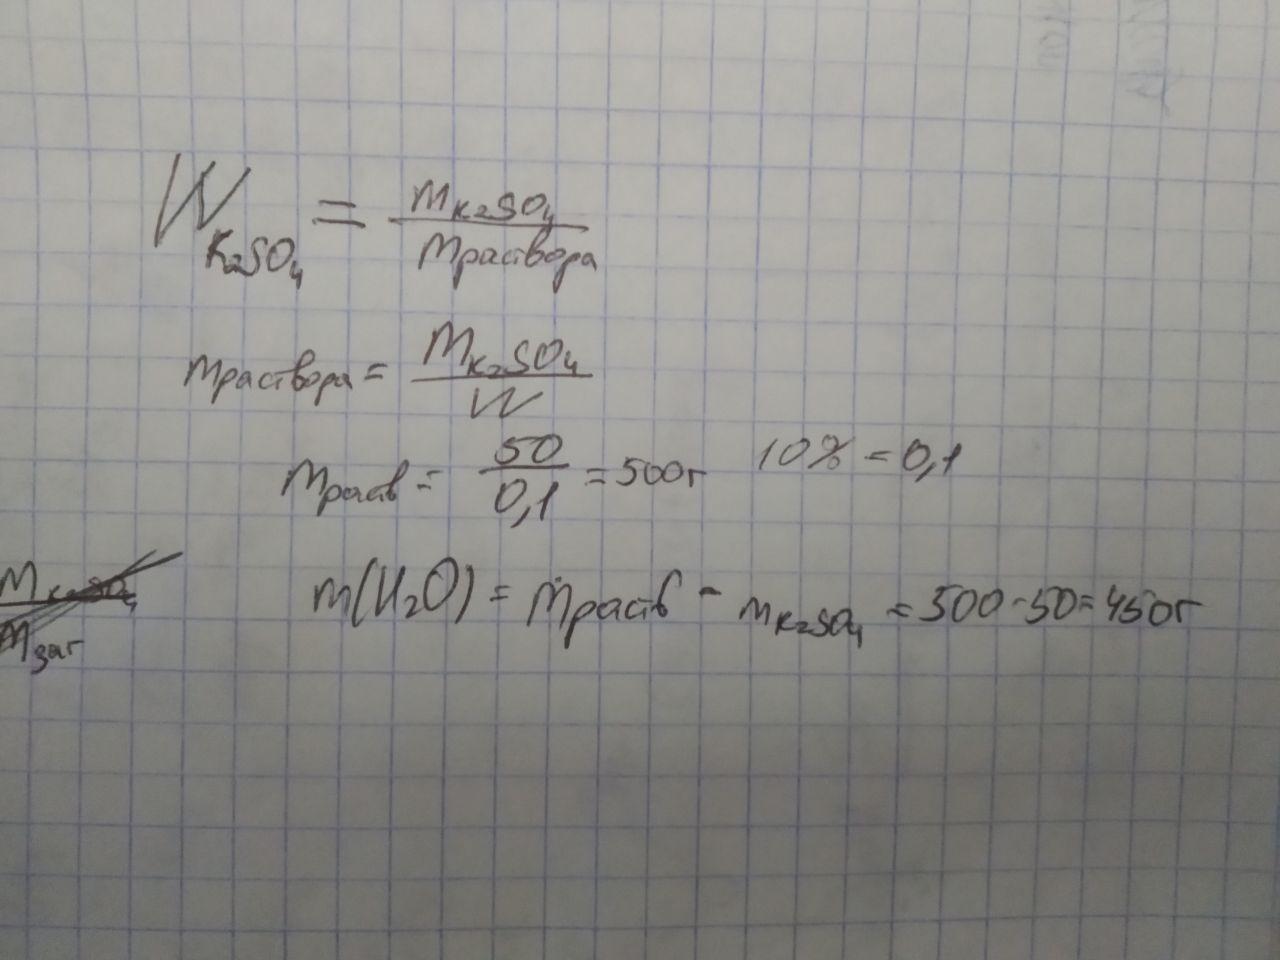 W K₂SO₄ = m K₂SO₄ / m раствора
m раствора = m K₂SO₄ / W
m раств = 50 / 0,1 = 500г 10% = 0,1
m K₂SO₄ / m заг
m(H₂O) = m раств - m K₂SO₄ = 500-50=450г